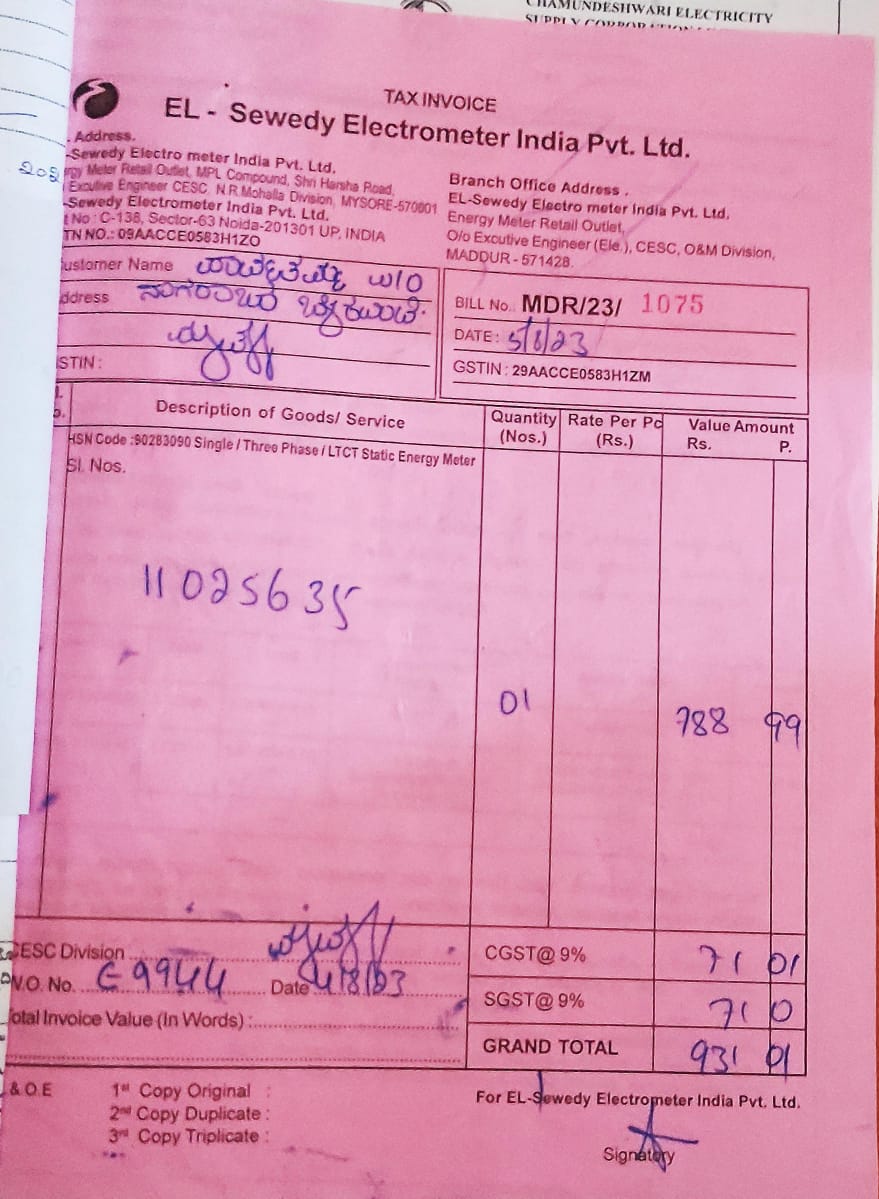 CHAMUNDESHWARI ELECTRICITY
TAX INVOICE
EL - Sewedy Electrometer India Pvt. Ltd.
Address.
-Sewedy Electro meter India Pvt. Ltd.
rgy Meter Retail Outlet, MPL Compound, Shri Harsha Road,
Excutive Engineer CESC, N.R.Mohalla Division, MYSORE-570001
-Sewedy Electrometer India Pvt. Ltd.
t No : C-138, Sector-63 Noida-201301 UP, INDIA
TN NO.: 09AACCE0583H1ZO
Branch Office Address .
EL-Sewedy Electro meter India Pvt. Ltd,
Energy Meter Retail Outlet,
O/o Excutive Engineer (Ele.), CESC, O&M Division,
MADDUR - 571428.
ustomer Name W/O
ddress
STIN :
BILL No. MDR/23/ 1075
DATE : 5/8/23
GSTIN : 29AACCE0583H1ZM
Description of Goods/ Service
Quantity (Nos.)
Rate Per Pc (Rs.)
Value Amount
Rs. P.
HSN Code :90283090 Single / Three Phase / LTCT Static Energy Meter
Sl. Nos.
11025635
01 788 99
CESC Division
CGST@ 9% 71 01
W.O. No. E9944 Date 4/8/23
SGST@ 9% 71 0
otal Invoice Value (In Words) :
GRAND TOTAL 931 01
& O.E
1st Copy Original :
2nd Copy Duplicate :
3rd Copy Triplicate :
For EL-Sewedy Electrometer India Pvt. Ltd.
Signatory